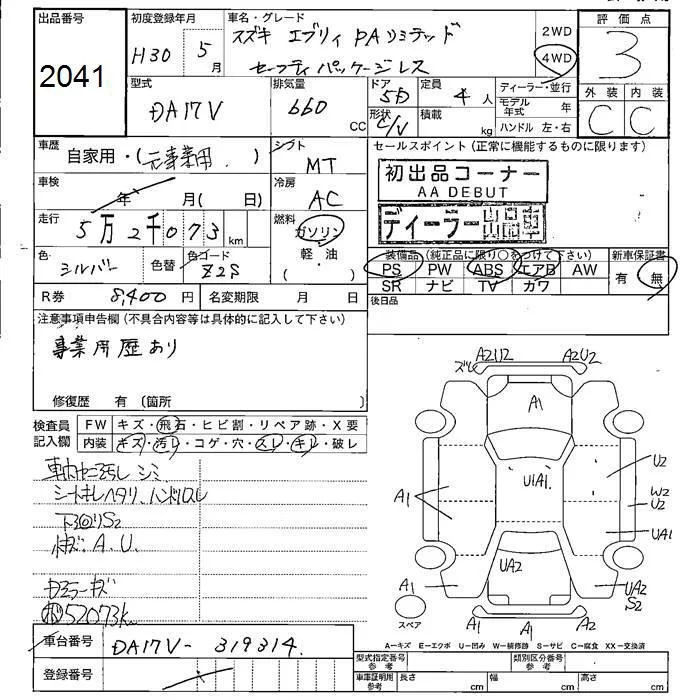 出品番号
2041
初度登録年月
H30 5月
車名・グレード
スズキ エブリィ PAリミテッド
セーフティパッケージレス
2WD
4WD
評価点
3
外装 内装
C C
型式
DA17V
排気量
660 CC
ドア
5D
形状
C/V
定員
4人
積載
kg
ディーラー・並行
モデル年式 年
ハンドル 左・右
車歴
自家用・(元事業用)
シフト
MT
車検
年 月( 日)
冷房
AC
走行
5万2千073km
燃料
ガソリン
軽油
( )
色
シルバー
色替
色コード
Z2S
R券 8,400円
名変期限 月 日
セールスポイント(正常に機能するものに限ります)
初出品コーナー
AA DEBUT
ディーラー出品車
装備品(純正品に限り○をつけて下さい)
PS PW ABS エアB AW
SR ナビ TV カワ
新車保証書
有 無
後日品
注意事項申告欄(不具合内容等は具体的に記入して下さい)
事業用歴あり
修復歴 有(箇所 )
検査員
記入欄
FW キズ・飛石・ヒビ割・リペア跡・X要
内装 キズ・汚レ・コゲ・穴・スレ・キレ・破レ
シートキレヘタリ、ハンドルスレ
A.U.
52073k
車台番号 DA17V-319314
登録番号
A2U2 A2U2
A1
U1A1
U2
W2
U2
A1
UA1
UA2
A1
UA2
S2
スペア
A1 A1 A2
A-キズ E-エクボ U-凹み W-補修跡 S-サビ C-腐食 XX-交換済
型式指定番号
参考
類別区分番号
参考
車庫証明用
参考
長さ cm 幅 cm 高さ cm